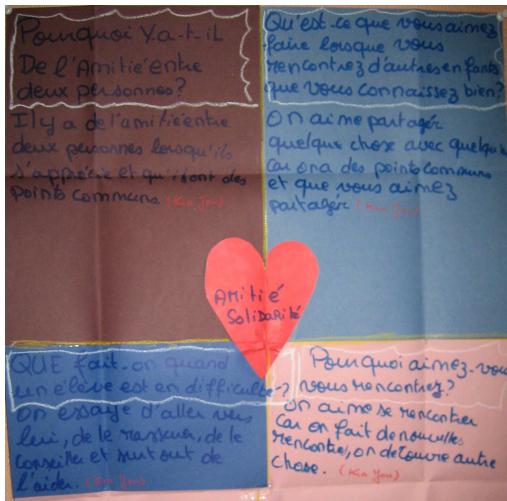 Pourquoi Ya-t-il
De l'Amitié entre
deux personnes?
Il y a de l'amitié entre
deux personnes lorsqu'ils
s'apprécie et qu'ils ont des
points communs (Kin Jou)
Qu'est-ce que vous aimez
faire lorsque vous
rencontrez d'autres enfants
que vous connaissez bien?
On aime partagér
quelque chose avec quelqu'u
car on a des points communs
et que vous aimez
partagér (Kin Jou)
Amitié
Solidarité
QUE fait-on quand
un élève est en difficulté?
On essaye d'aller vers
lui, de le rassurer, de le
conseiller et surtout de
l'aider. (Kin Jou)
Pourquoi aimez-vous
vous rencontrez?
On aime se rencontrer
Car on fait de nouvelles
rencontres, on découvre autre
chose. (Kin Jou)